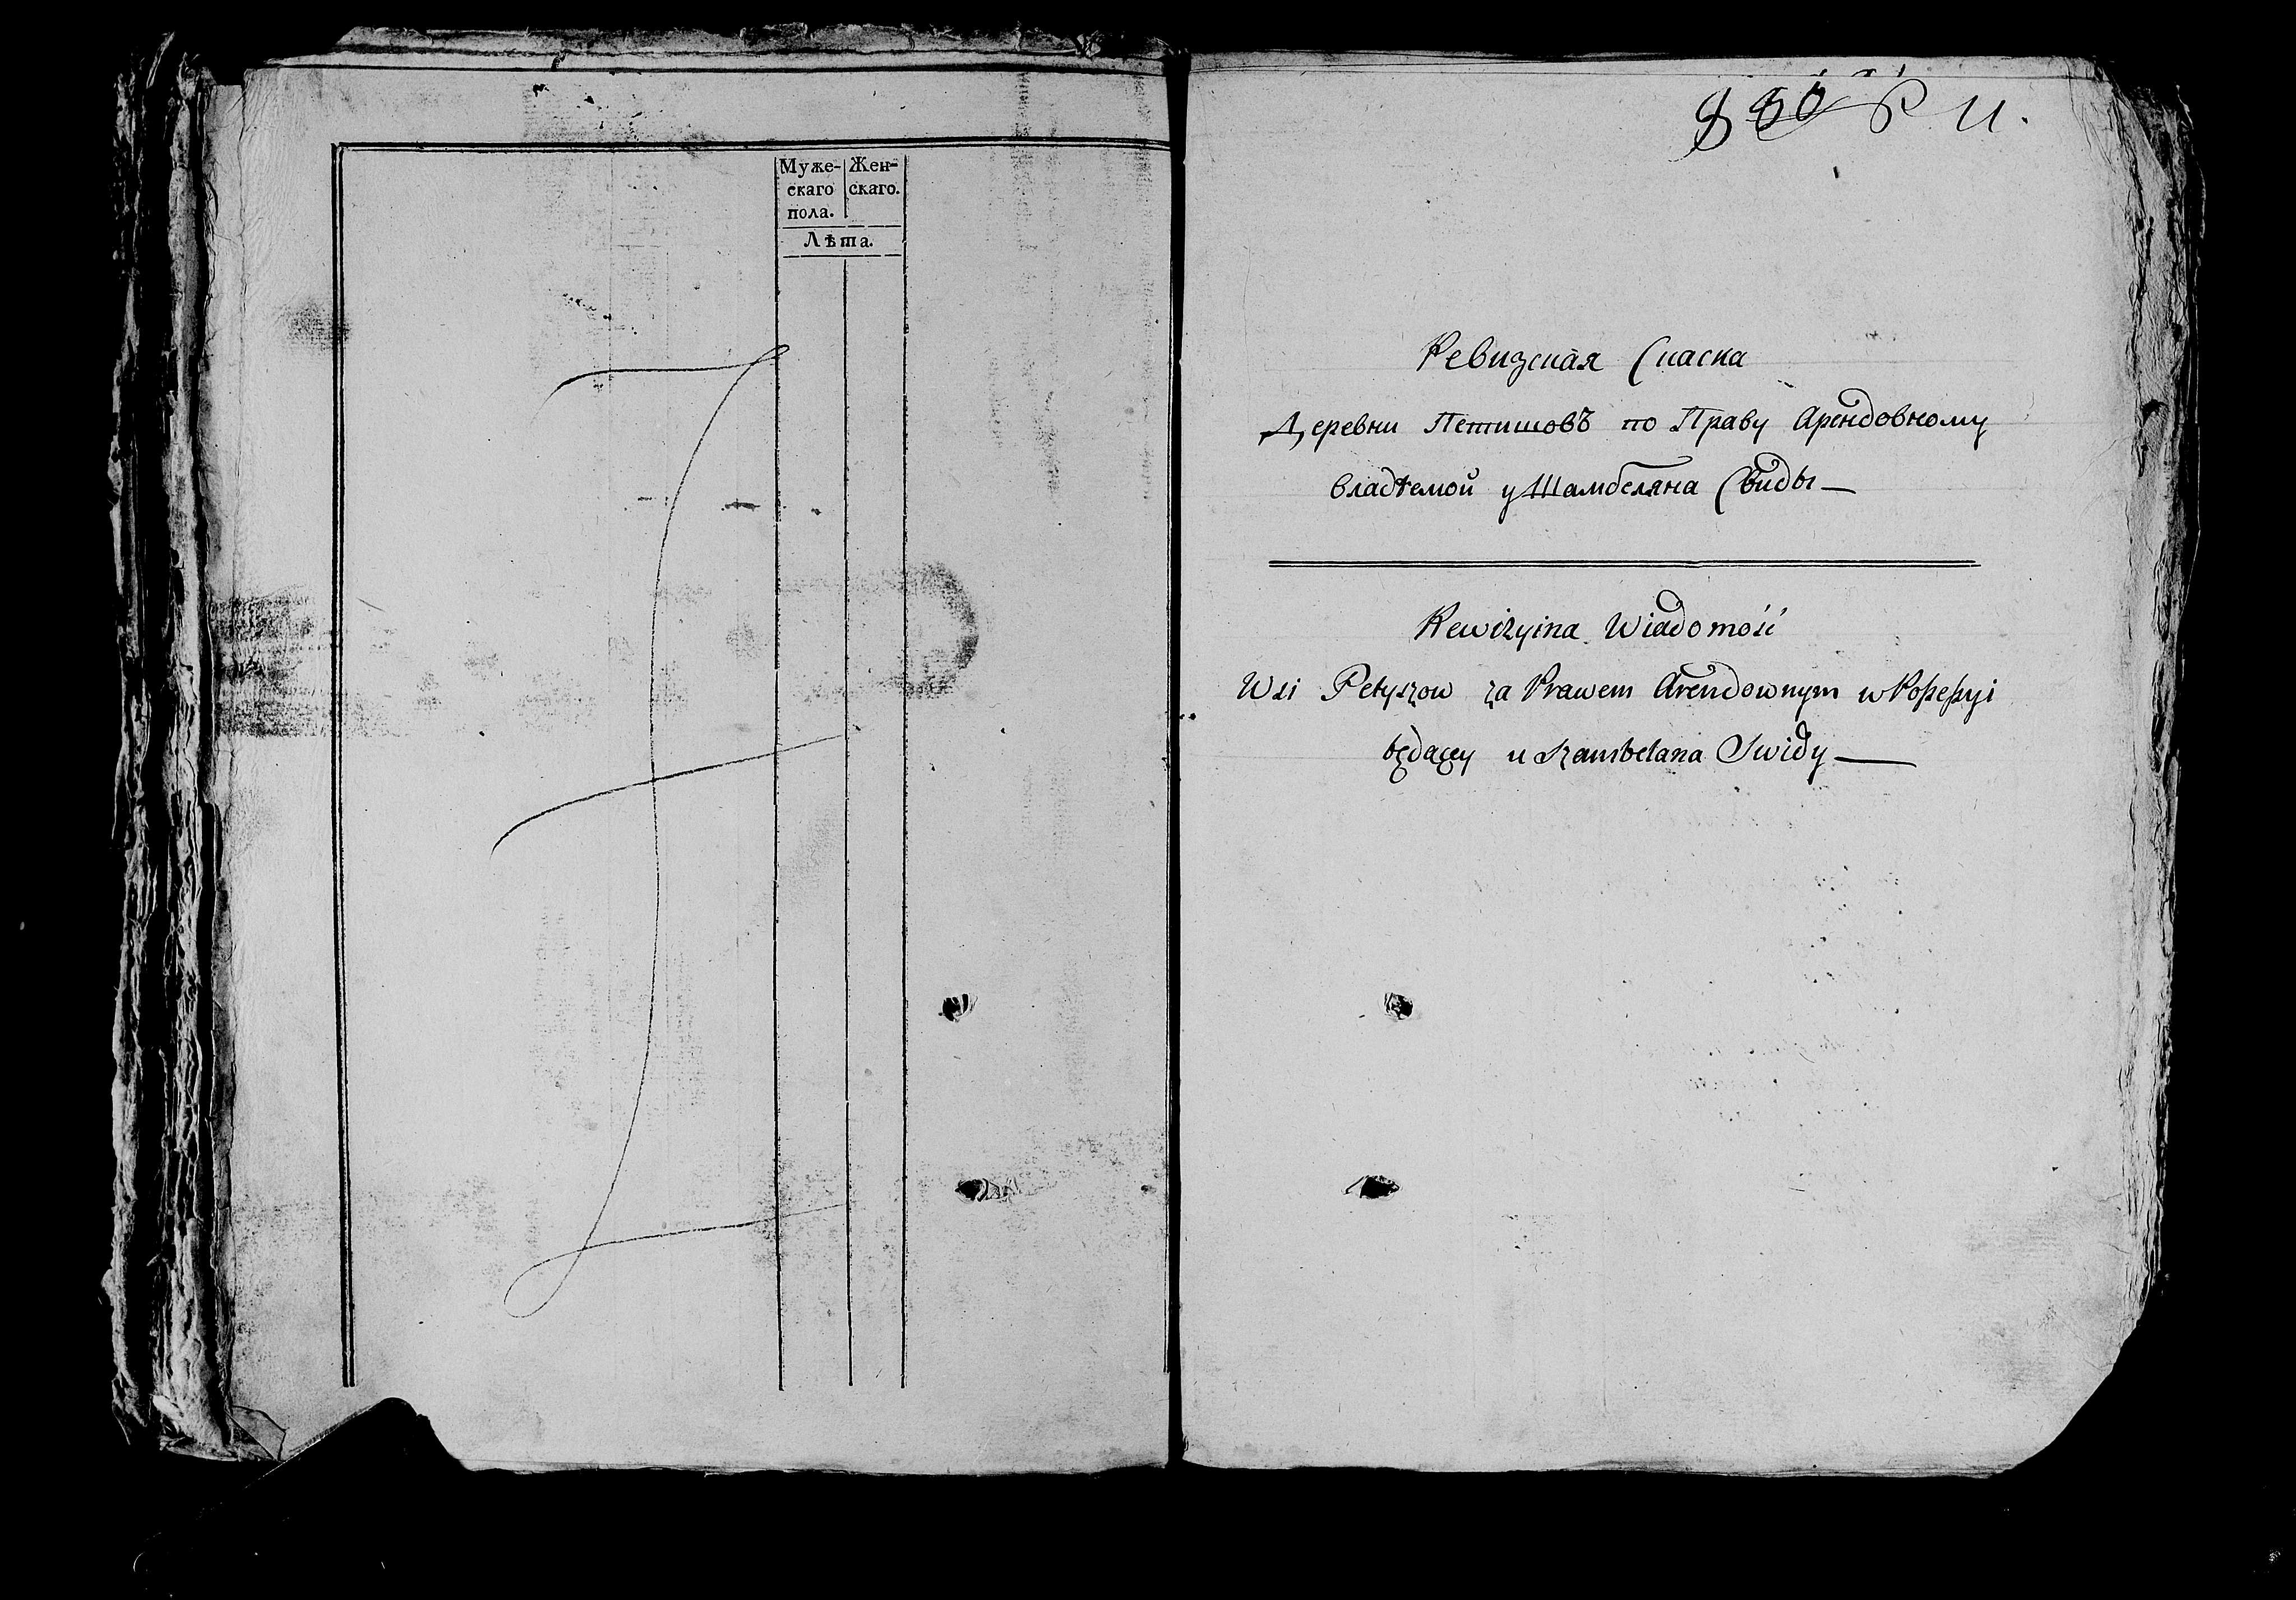 Муже- Жен-
скаго скаго.
пола.
Лѣта.
Ревизская Сказка
Деревни Петишовъ по Праву Арендовному
владѣемой у Шамбеляна Свиды —
Rewizyina Wiadomość
Wsi Petyszow za Prawem Arendownym w Possessyi
będącey u Szambelana Swidy —